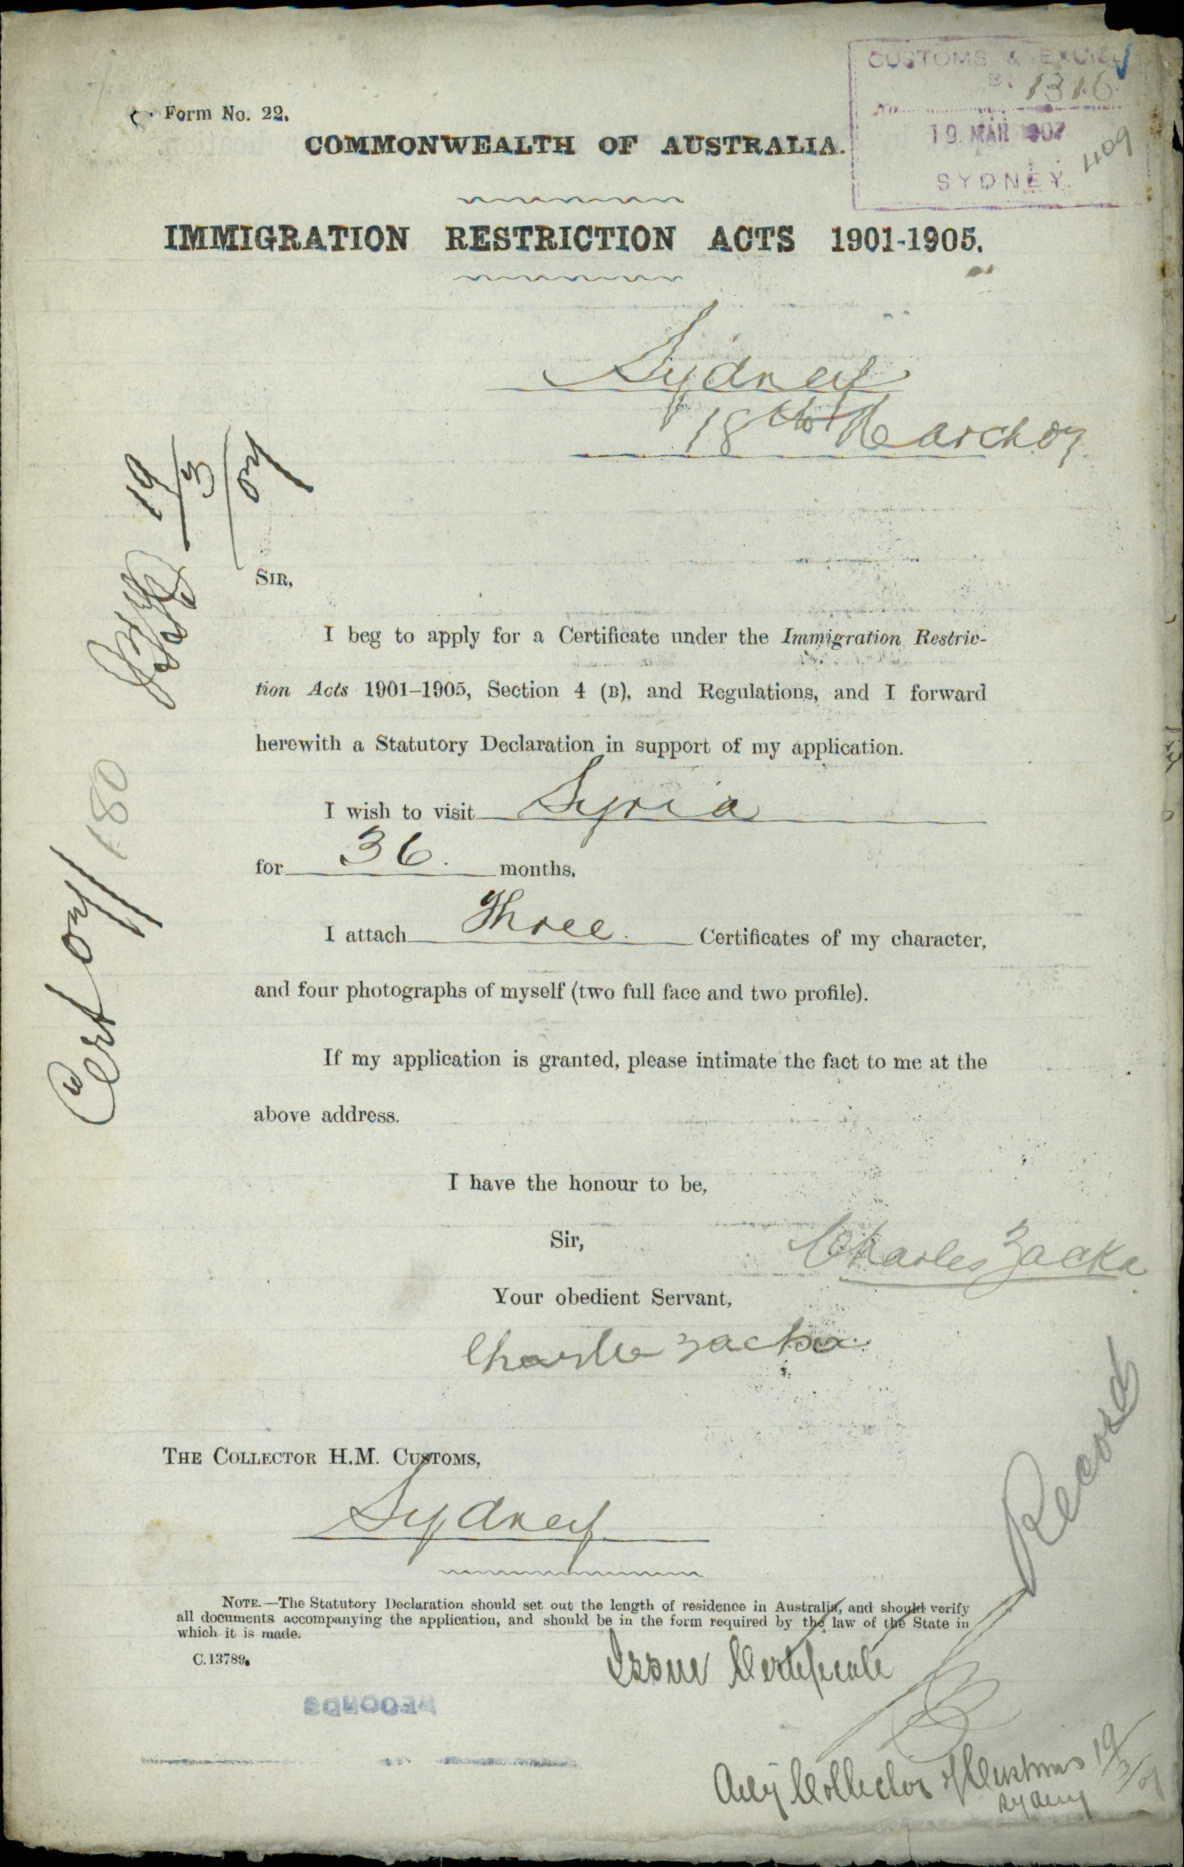 CUSTOMS & EXCISE
B. 1316
No
19 MAR 1907
SYDNEY
409
Form No. 22.
COMMONWEALTH OF AUSTRALIA.
IMMIGRATION RESTRICTION ACTS 1901-1905.
Sydney
18th March 07
19/3/07
SIR,
I beg to apply for a Certificate under the Immigration Restric-
tion Acts 1901–1905, Section 4 (B), and Regulations, and I forward
herewith a Statutory Declaration in support of my application.
I wish to visit Syria
for 36. months.
I attach Three. Certificates of my character,
and four photographs of myself (two full face and two profile).
If my application is granted, please intimate the fact to me at the
above address.
Cert 07/180
I have the honour to be,
Sir,
Charles Zacka
Your obedient Servant,
Charlie Zacka
THE COLLECTOR H.M. CUSTOMS,
Sydney
Record
NOTE.—The Statutory Declaration should set out the length of residence in Australia, and should verify
all documents accompanying the application, and should be in the form required by the law of the State in
which it is made.
C.13789.
Issue Certificate
RECORDS
Actg Collector of Customs 19/3/07
Sydney